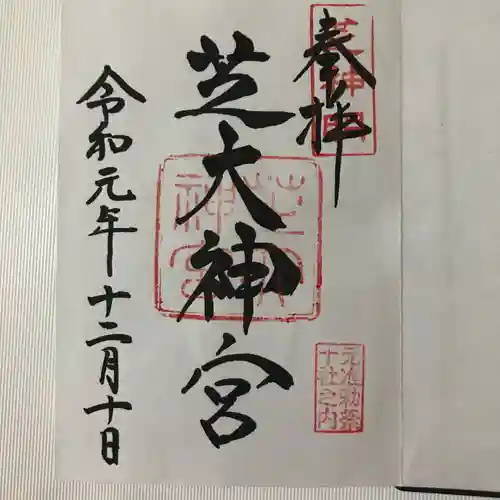 奉拝
芝神明
芝大神宮
元准勅祭
十社之内
令和元年十二月十日